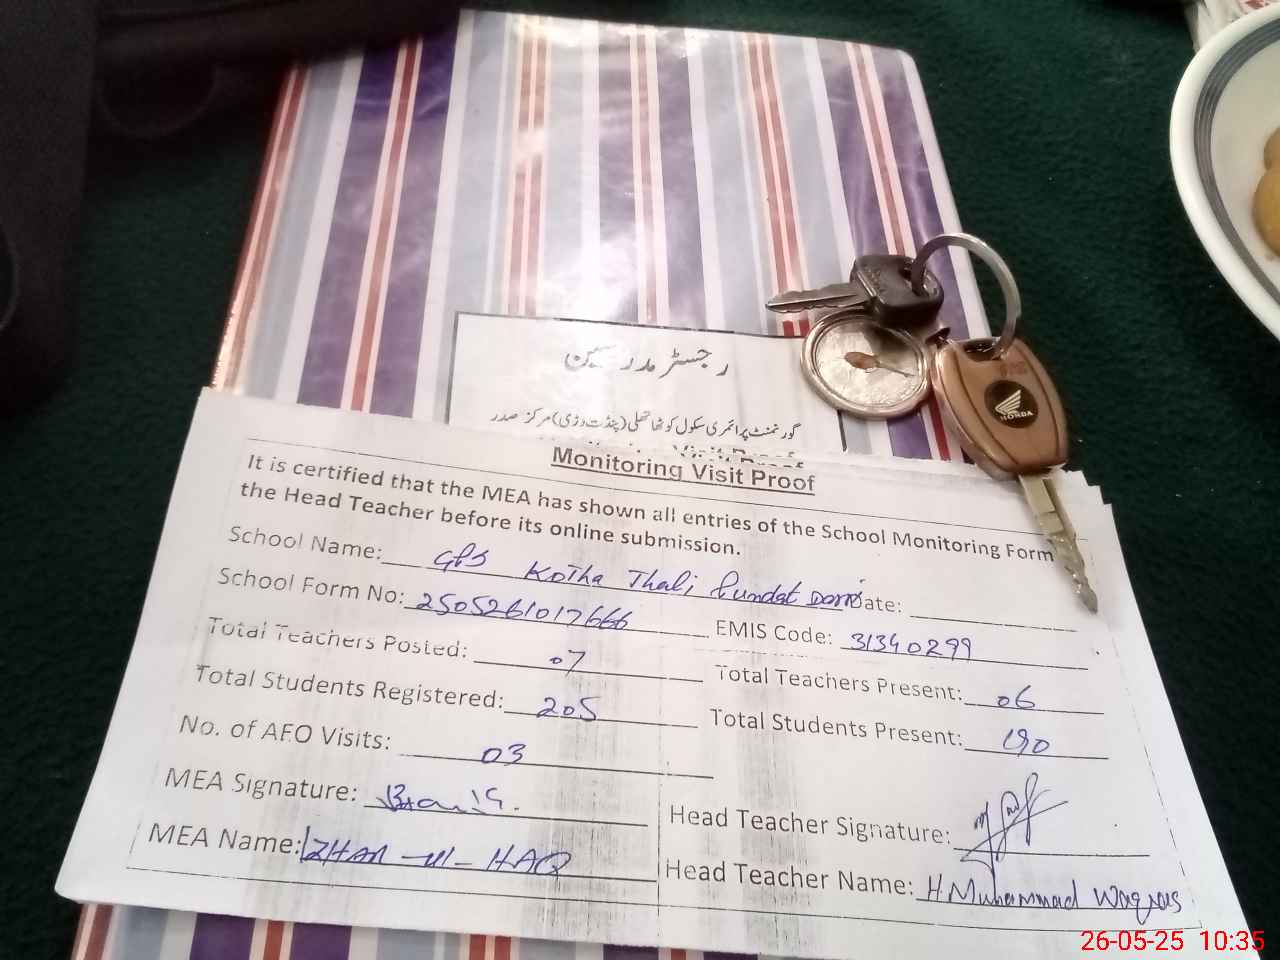 رجسٹر مدرسین
گورنمنٹ پرائمری سکول کوٹھا تھلی (پنڈت دڑی) مرکز صدر
Monitoring Visit Proof
It is certified that the MEA has shown all entries of the School Monitoring Form
the Head Teacher before its online submission.
School Name: GPS Kotha Thali, Pundat Darri ate:
School Form No: 2505261017666 EMIS Code: 31340299
Total Teachers Posted: 07 Total Teachers Present: 06
Total Students Registered: 205 Total Students Present: 190
No. of AEO Visits: 03
MEA Signature: Head Teacher Signature:
MEA Name: IZHAR-UL-HAQ Head Teacher Name: H. Muhammad Waqas
HONDA
26-05-25 10:35